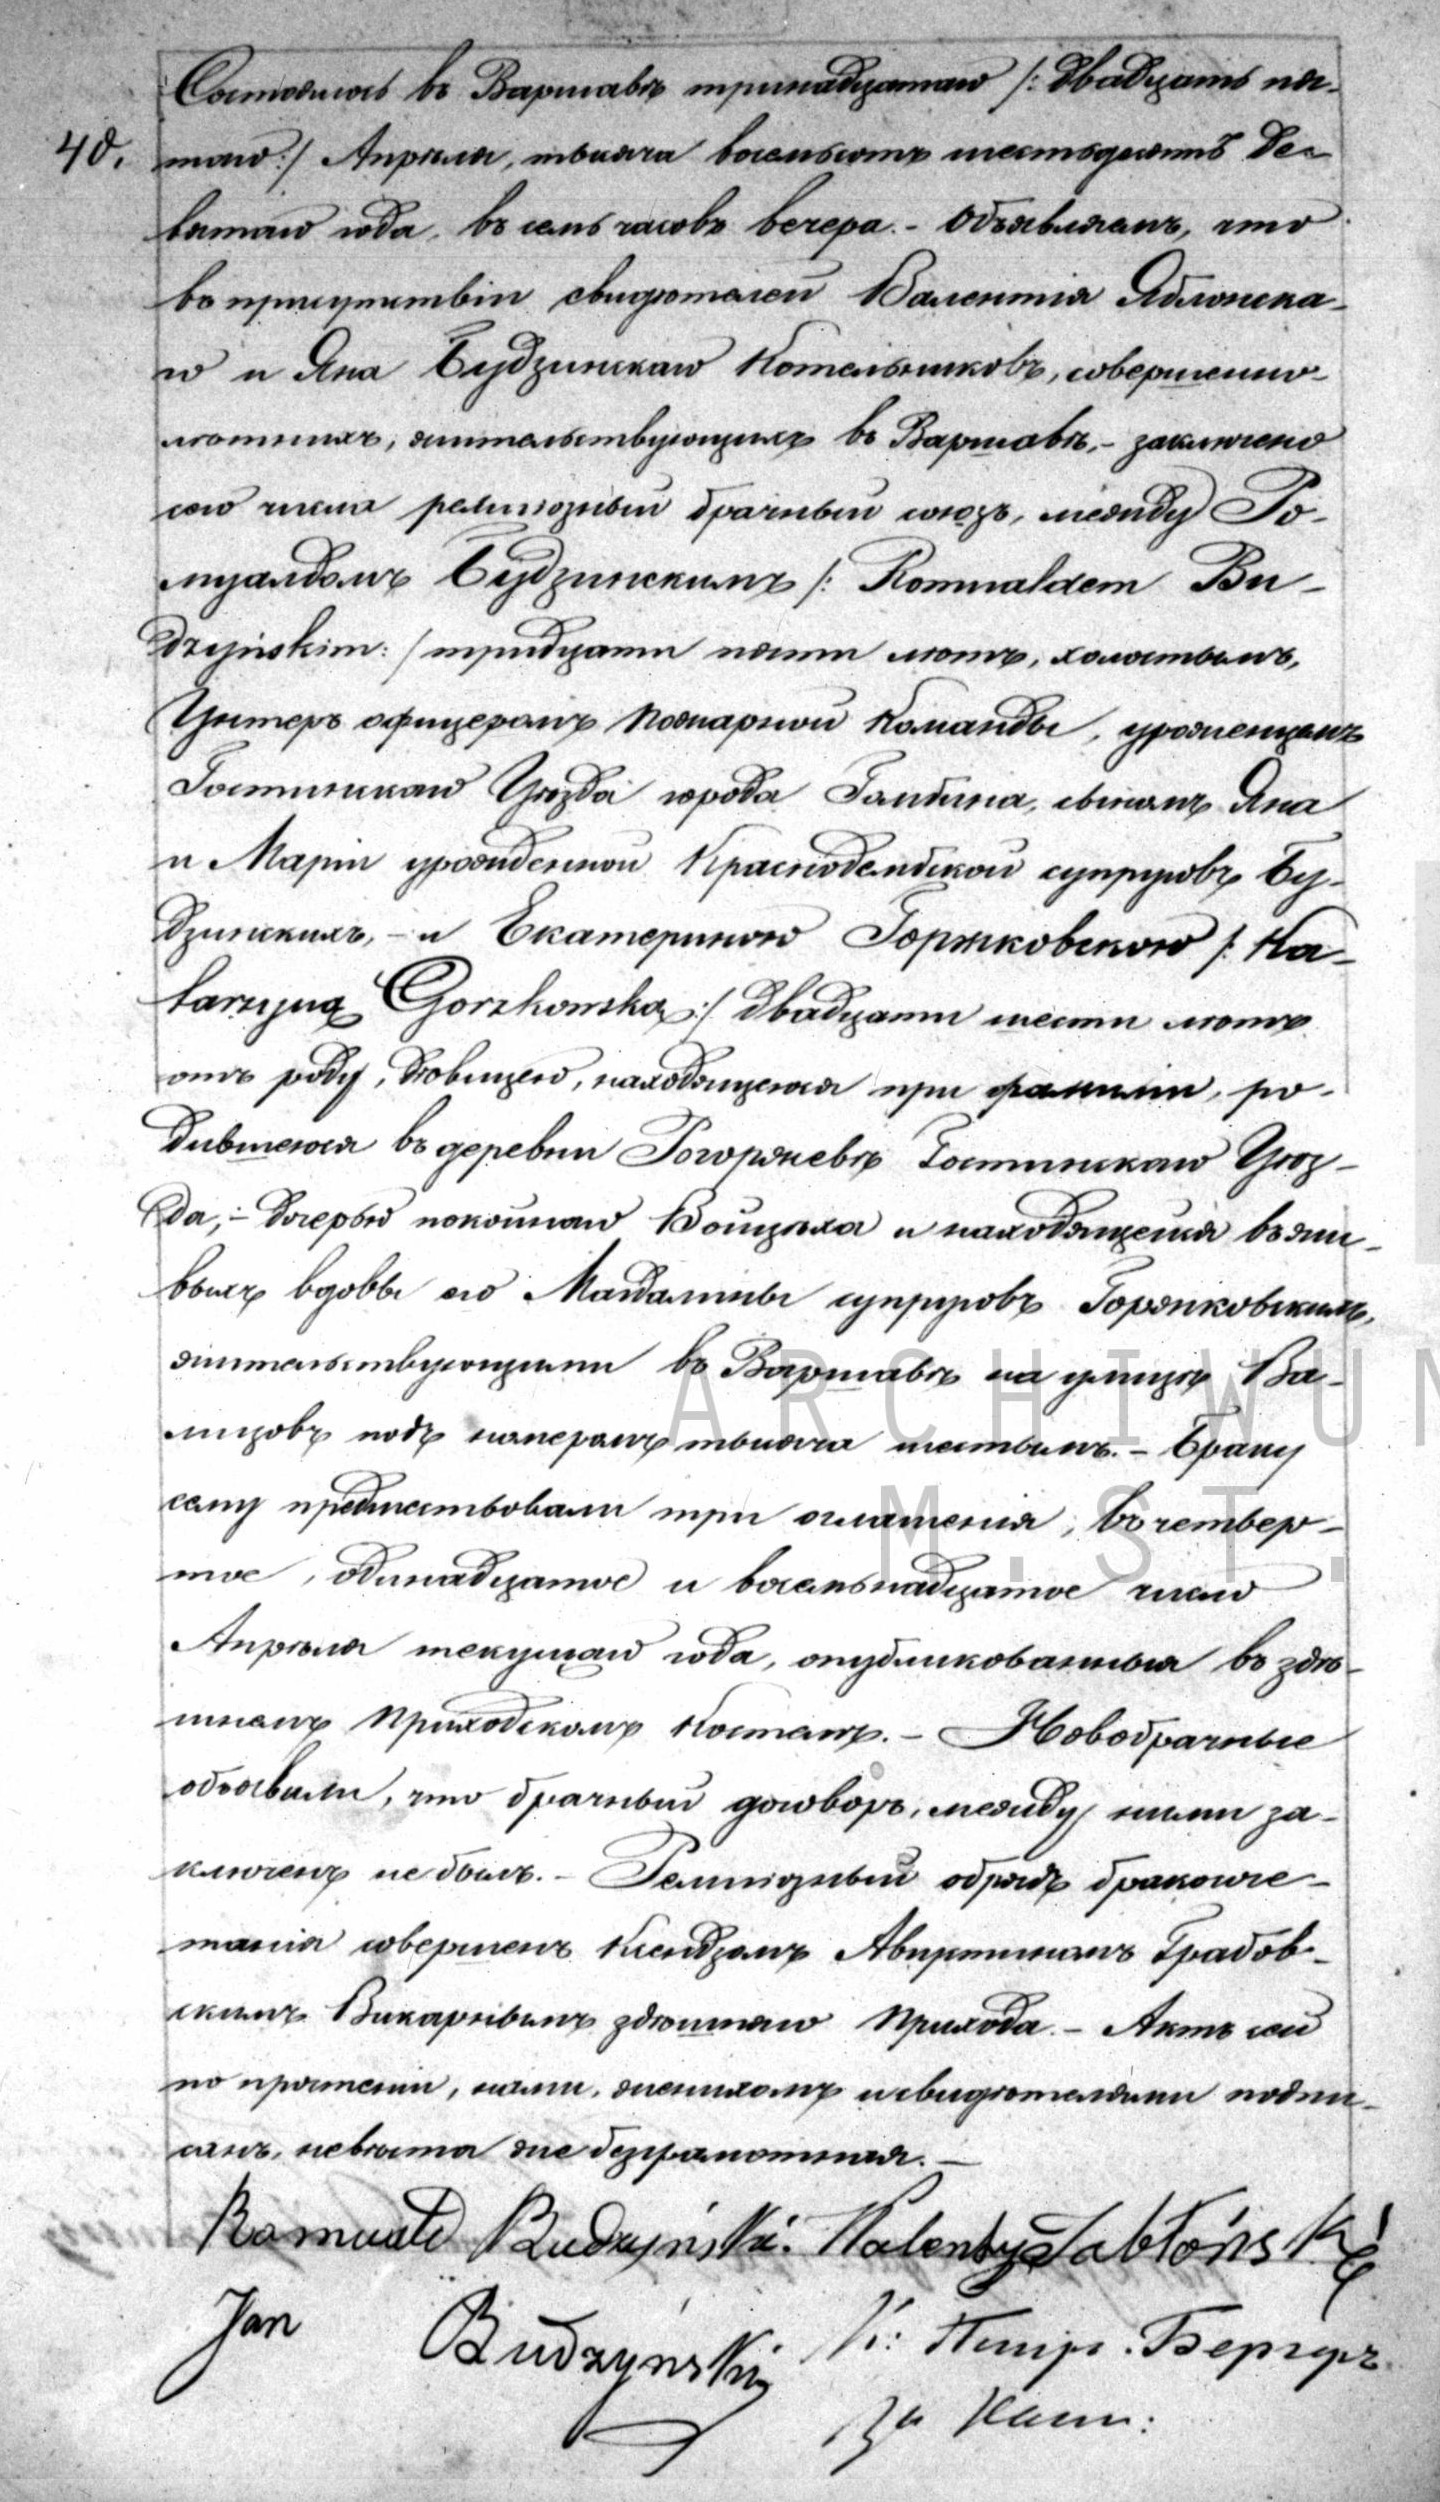 Состоялось въ Варшавѣ тринадцатаго /: двадцать пя-
40. таго :/ Апрѣля, тысяча восемьсотъ шестьдесятъ де-
вятаго года, въ семь часовъ вечера. - Объявляемъ, что
въ присутствіи свидѣтелей Валентія Яблонска-
го и Яна Будзинскаго Котельниковъ, совершенно-
лѣтнихъ, жительствующихъ въ Варшавѣ, - заключено
сего числа религіозный брачный союзъ, между Ро-
муалдомъ Будзинскимъ /: Romualdem Bu-
dzyńskim: / тридцати пяти лѣтъ, холостымъ,
Унтеръ офицеромъ Пожарной Команды, уроженцемъ
Гостинскаго Уѣзда города Гомбина, сыномъ Яна
и Маріи урожденной Краснодембской супруговъ Бу-
дзинскихъ, - и Екатериною Горжковскою /: Ka-
tarzyną Gorzkowską :/ двадцати шести лѣтъ
отъ роду, дѣвицею, находящеюся при фамиліи, ро-
дившеюся въ деревни Рогоржевѣ Гостинскаго Уѣз-
да, - дочерью покойнаго Войцѣха и находящейся въ жи-
выхъ вдовы его Магдалины супруговъ Горжковскихъ,
жительствующими въ Варшавѣ на улицѣ Ва-
лицовъ подъ номеромъ тысяча шестымъ. - Браку
сему предшествовали три оглашенія, въ четвер-
тое, одинадцатое и восемьнадцатое число
Апрѣля текущаго года, опубликованныя въ здѣ-
шнемъ Приходскомъ Костелѣ. - Новобрачные
объявили, что брачный договоръ, между ними за-
ключенъ не былъ. - Религіозный обрядъ бракосоче-
танія совершенъ Ксендзомъ Грабов-
скимъ Викарнымъ здѣшняго Прихода. - Актъ сей
по прочтеніи, нами, женихомъ и свидѣтелями подпи-
санъ, невѣста же безграмотная. -
Romuald Budzyński. Walenty Jabłoński
Jan Budzyński К: Бергеръ
За Наст: